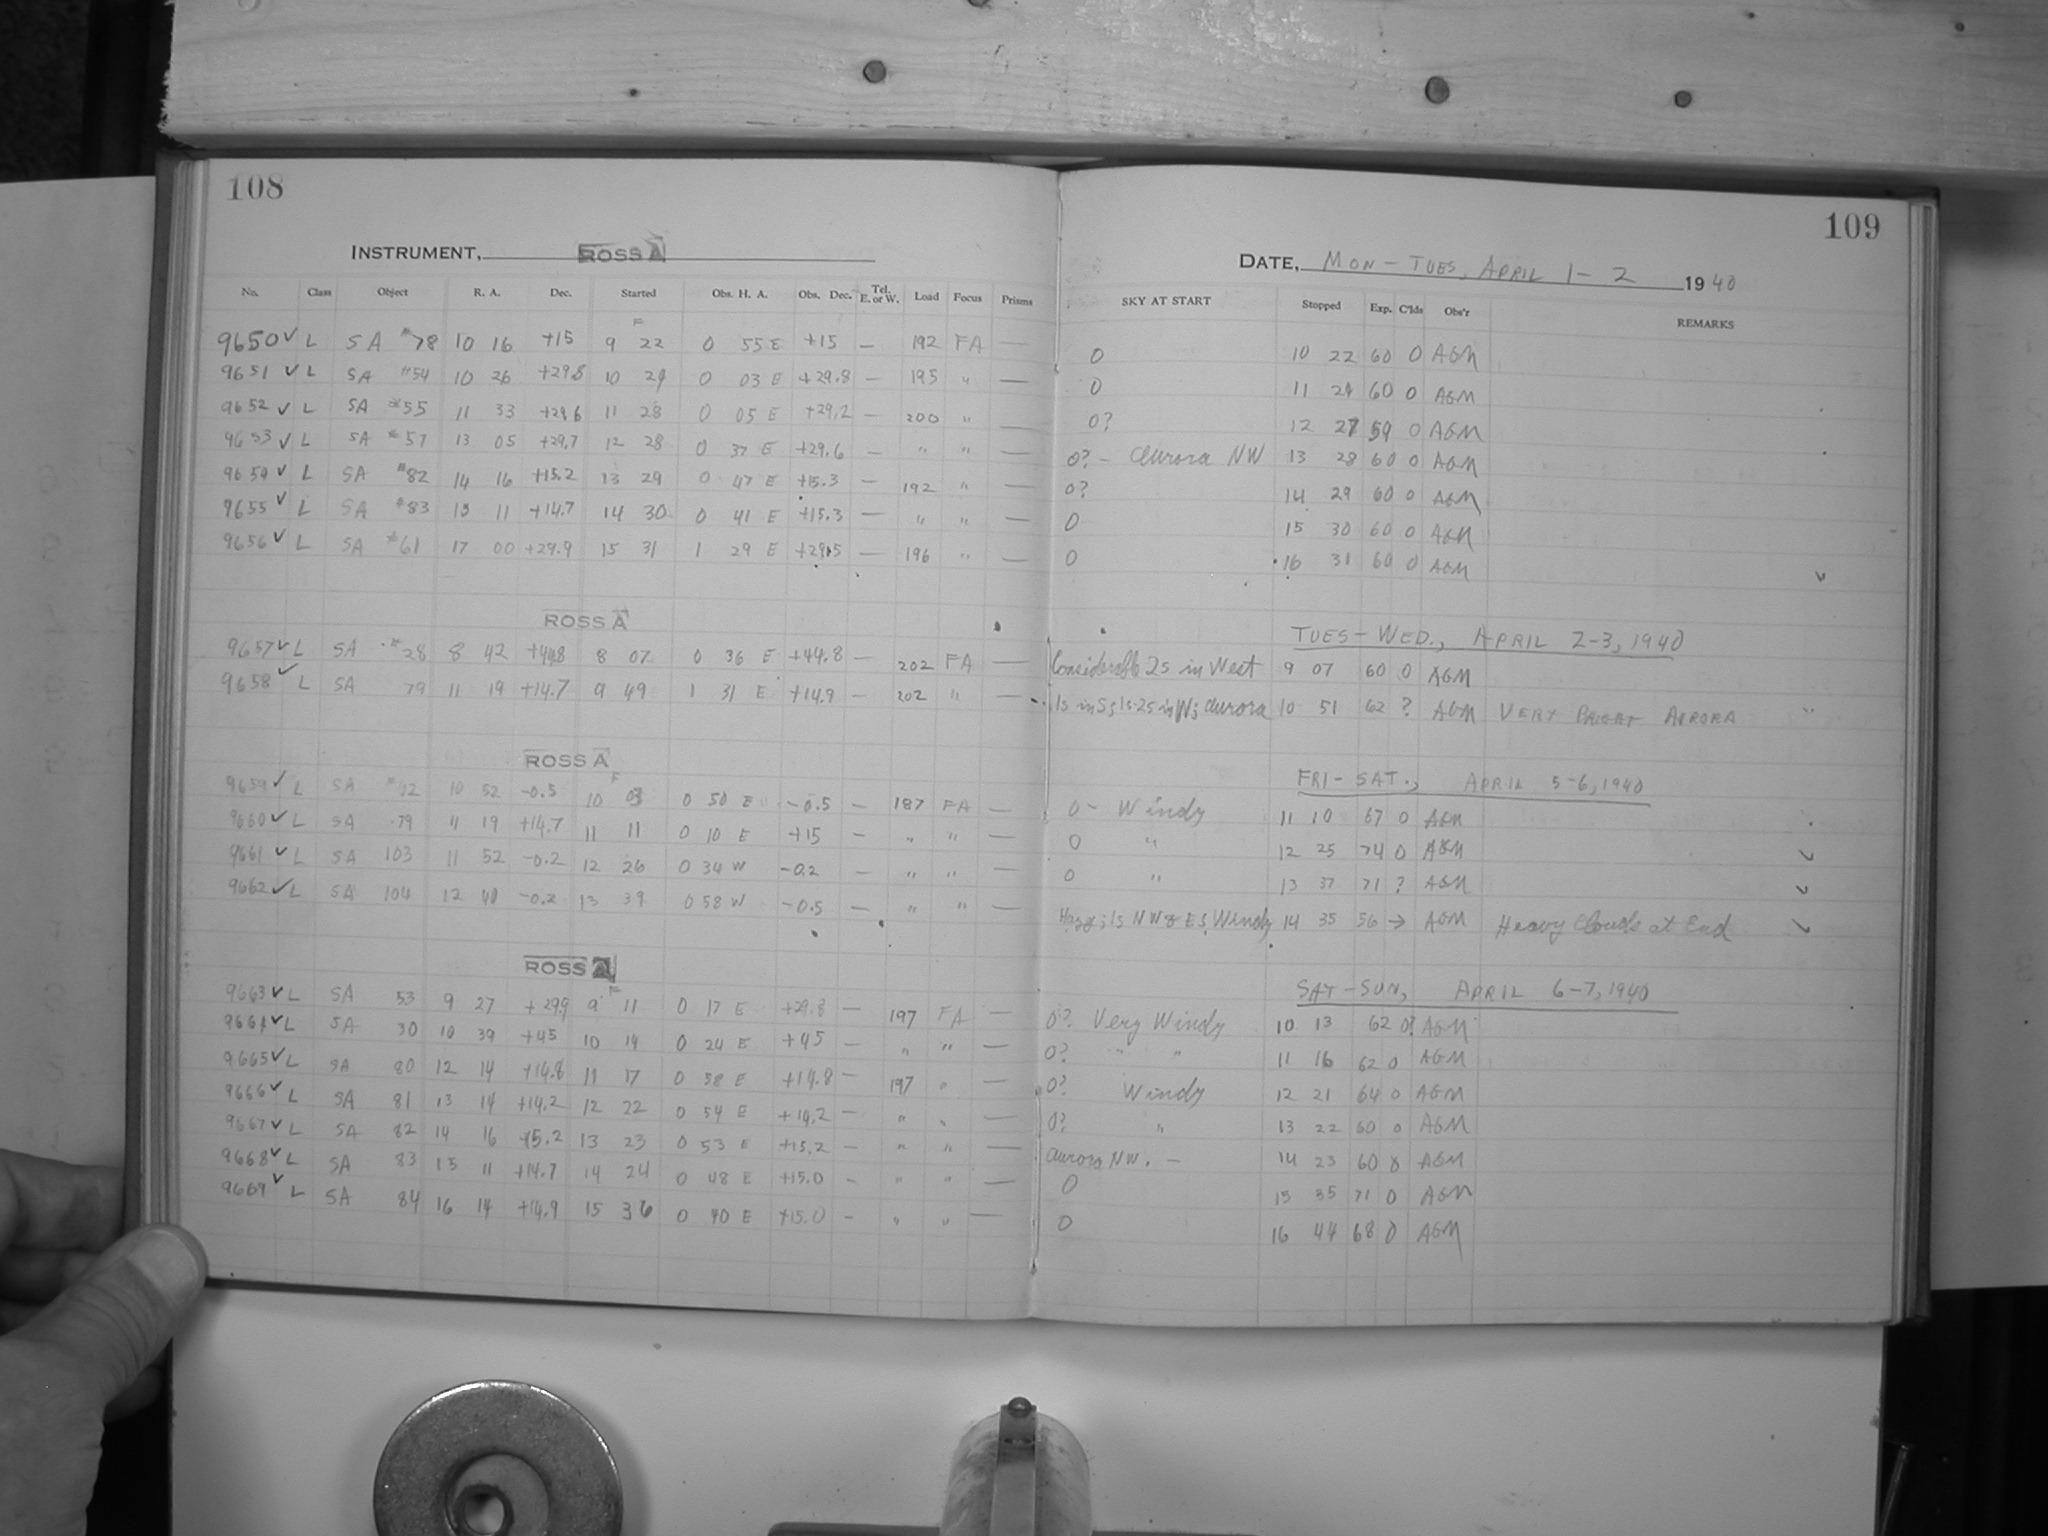 108
INSTRUMENT, ROSS A
No. Class Object R. A. Dec. Started Obs. H. A. Obs. Dec. Tel. E. or W. Load Focus Prisms
F
9650 ✓ L SA #78 10 16 +15 9 22 0 55 E +15 — 192 FA —
9651 ✓ L SA "54 10 26 +29.8 10 24 0 03 E +29.8 — 195 " —
9652 ✓ L SA #55 11 33 +29.6 11 28 0 05 E +29.2 — 200 " —
9653 ✓ L SA #57 13 05 +29.7 12 28 0 37 E +29.6 — " " —
9654 ✓ L SA #82 14 16 +15.2 13 29 0 47 E +15.3 — 192 " —
9655 ✓ L SA #83 15 11 +14.7 14 30 0 41 E +15.3 — " " —
9656 ✓ L SA #61 17 00 +29.9 15 31 1 29 E +29.5 — 196 " —
ROSS A
9657 ✓ L SA #28 8 42 +44.8 8 07 0 36 E +44.8 — 202 FA —
9658 ✓ L SA 79 11 19 +14.7 9 49 1 31 E +14.9 — 202 " —
ROSS A
F
9659 ✓ L SA 10 52 -0.5 10 03 0 50 E -0.5 — 187 FA —
9660 ✓ L SA 79 11 19 +14.7 11 11 0 10 E +15 — " " —
9661 ✓ L SA 103 11 52 -0.2 12 26 0 34 W -0.2 — " " —
9662 ✓ L SA 104 12 40 -0.2 13 39 0 58 W -0.5 — " " —
ROSS A
F
9663 ✓ L SA 53 9 27 +29.9 9 11 0 17 E +29.8 — 197 FA —
9664 ✓ L SA 30 10 39 +45 10 14 0 24 E +45 — " " —
9665 ✓ L SA 80 12 14 +14.8 11 17 0 58 E +14.8 — 197 " —
9666 ✓ L SA 81 13 14 +14.2 12 22 0 54 E +14.2 — " " —
9667 ✓ L SA 82 14 16 +15.2 13 23 0 53 E +15.2 — " " —
9668 ✓ L SA 83 15 11 +14.7 14 24 0 48 E +15.0 — " " —
9669 ✓ L SA 84 16 14 +14.9 15 36 0 40 E +15.0 — " " —
109
DATE, MON - TUES, APRIL 1 - 2 1940
SKY AT START Stopped Exp. C'lds Obs'r REMARKS
0 10 22 60 0 AGM
0 11 24 60 0 AGM
0? 12 27 59 0 AGM
0? - Aurora NW 13 28 60 0 AGM
0? 14 29 60 0 AGM
0 15 30 60 0 AGM
0 16 31 60 0 AGM ✓
TUES - WED., APRIL 2-3, 1940
Considerable 2s in West 9 07 60 0 AGM
1s in S; 1s-2s in W; Aurora 10 51 62 ? AGM VERY BRIGHT AURORA "
FRI - SAT., APRIL 5-6, 1940
0 - Windy 11 10 67 0 AGM
0 " 12 25 74 0 AGM ✓
0 " 13 37 71 ? AGM ✓
Haze; 1s NW & E; Windy 14 35 56 → AGM Heavy Clouds at End ✓
SAT - SUN, APRIL 6-7, 1940
0? Very Windy 10 13 62 0? AGM
0? " " 11 16 62 0 AGM
0? Windy 12 21 64 0 AGM
0? " 13 22 60 0 AGM
Aurora NW. - 14 23 60 AGM
0 15 35 71 0 AGM
0 16 44 68 0 AGM